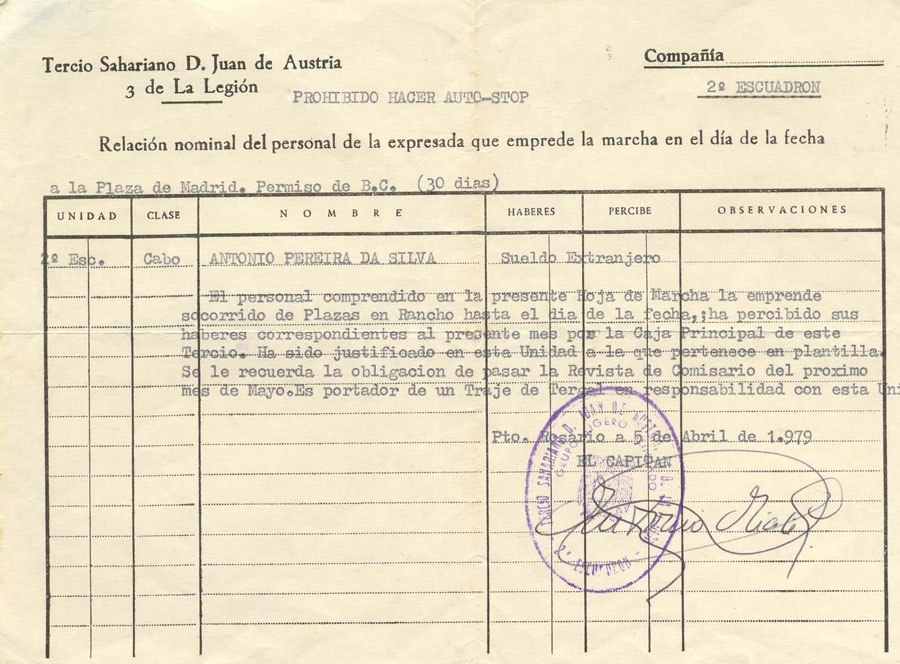 Tercio Sahariano D. Juan de Austria
3 de La Legión
Compañía
PROHIBIDO HACER AUTO-STOP
2º ESCUADRON
Relación nominal del personal de la expresada que emprede la marcha en el día de la fecha
a la Plaza de Madrid. Permiso de B.C. (30 dias)
UNIDAD CLASE NOMBRE HABERES PERCIBE OBSERVACIONES
2º Esc. Cabo ANTONIO PEREIRA DA SILVA Sueldo Extranjero
El personal comprendido en la presente Hoja de Marcha la emprende
socorrido de Plazas en Rancho hasta el dia de la fecha,;ha percibido sus
haberes correspondientes al presente mes por la Caja Principal de este
Tercio. Ha sido justificado en esta Unidad a la que pertenece en plantilla.
Se le recuerda la obligacion de pasar la Revista de Comisario del proximo
mes de Mayo.Es portador de un Traje de Tergal en responsabilidad con esta Uni
Pto. Rosario a 5 de Abril de 1.979
EL CAPITAN
TERCIO SAHARIANO D. JUAN DE AUSTRIA
GRUPO LIGERO
2º ESCUADRON